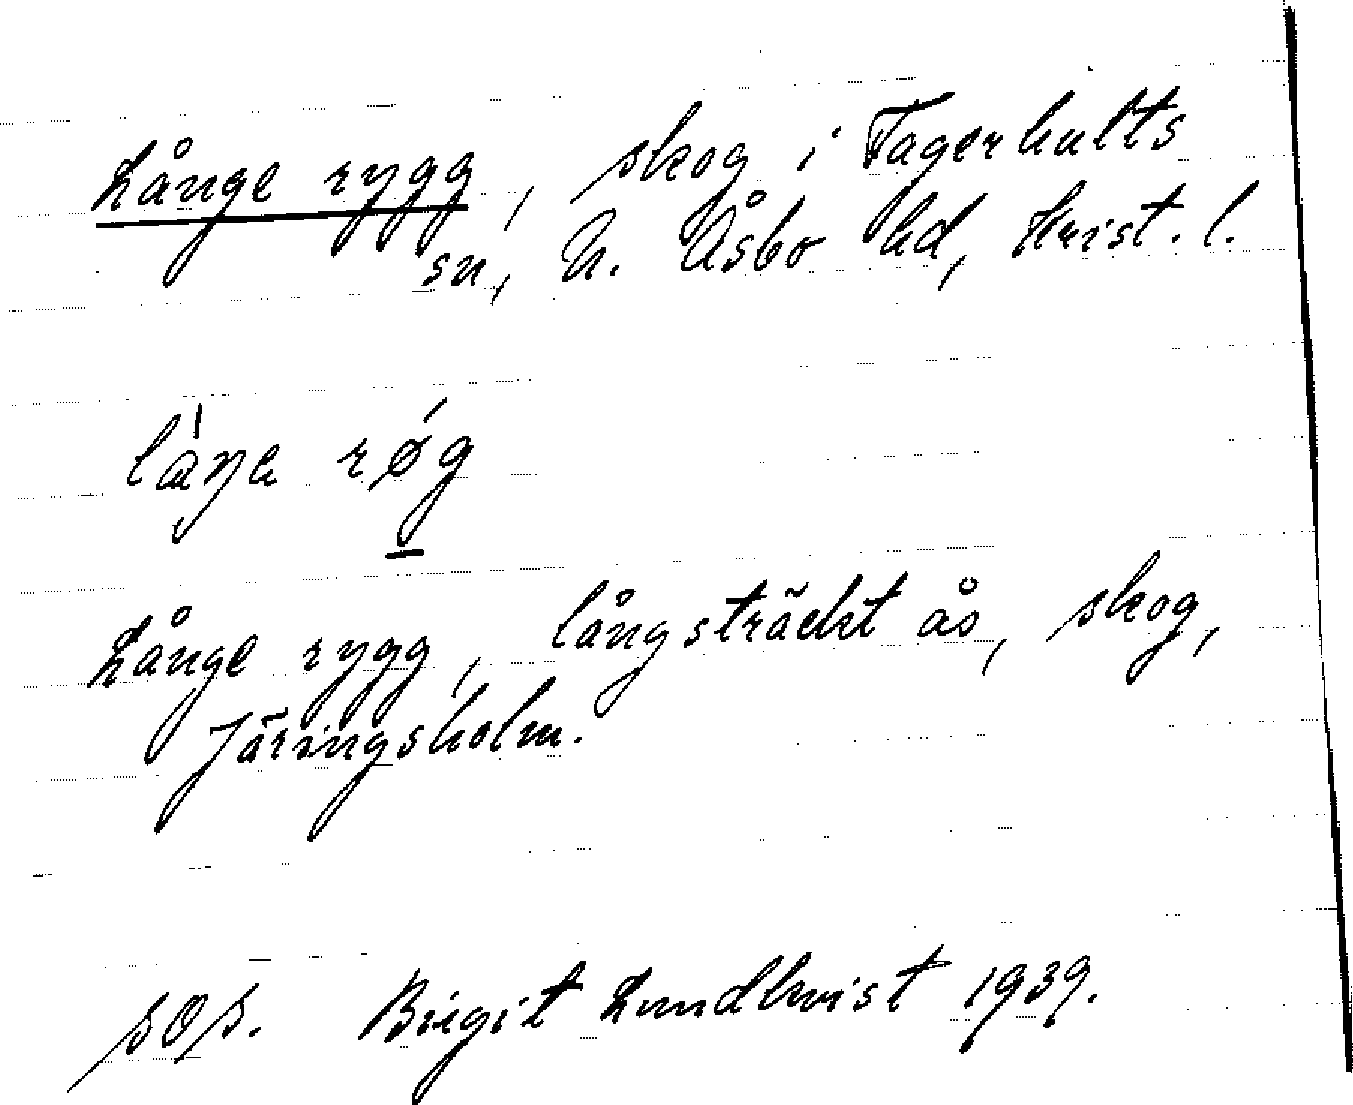 Långe rygg, skog i Fagerhults
sn, N. Åsbo hd, Krist. l.
låŋa røg
Långe rygg, långsträckt ås, skog,
Järingsholm.
Birgit Lundkvist 1939.